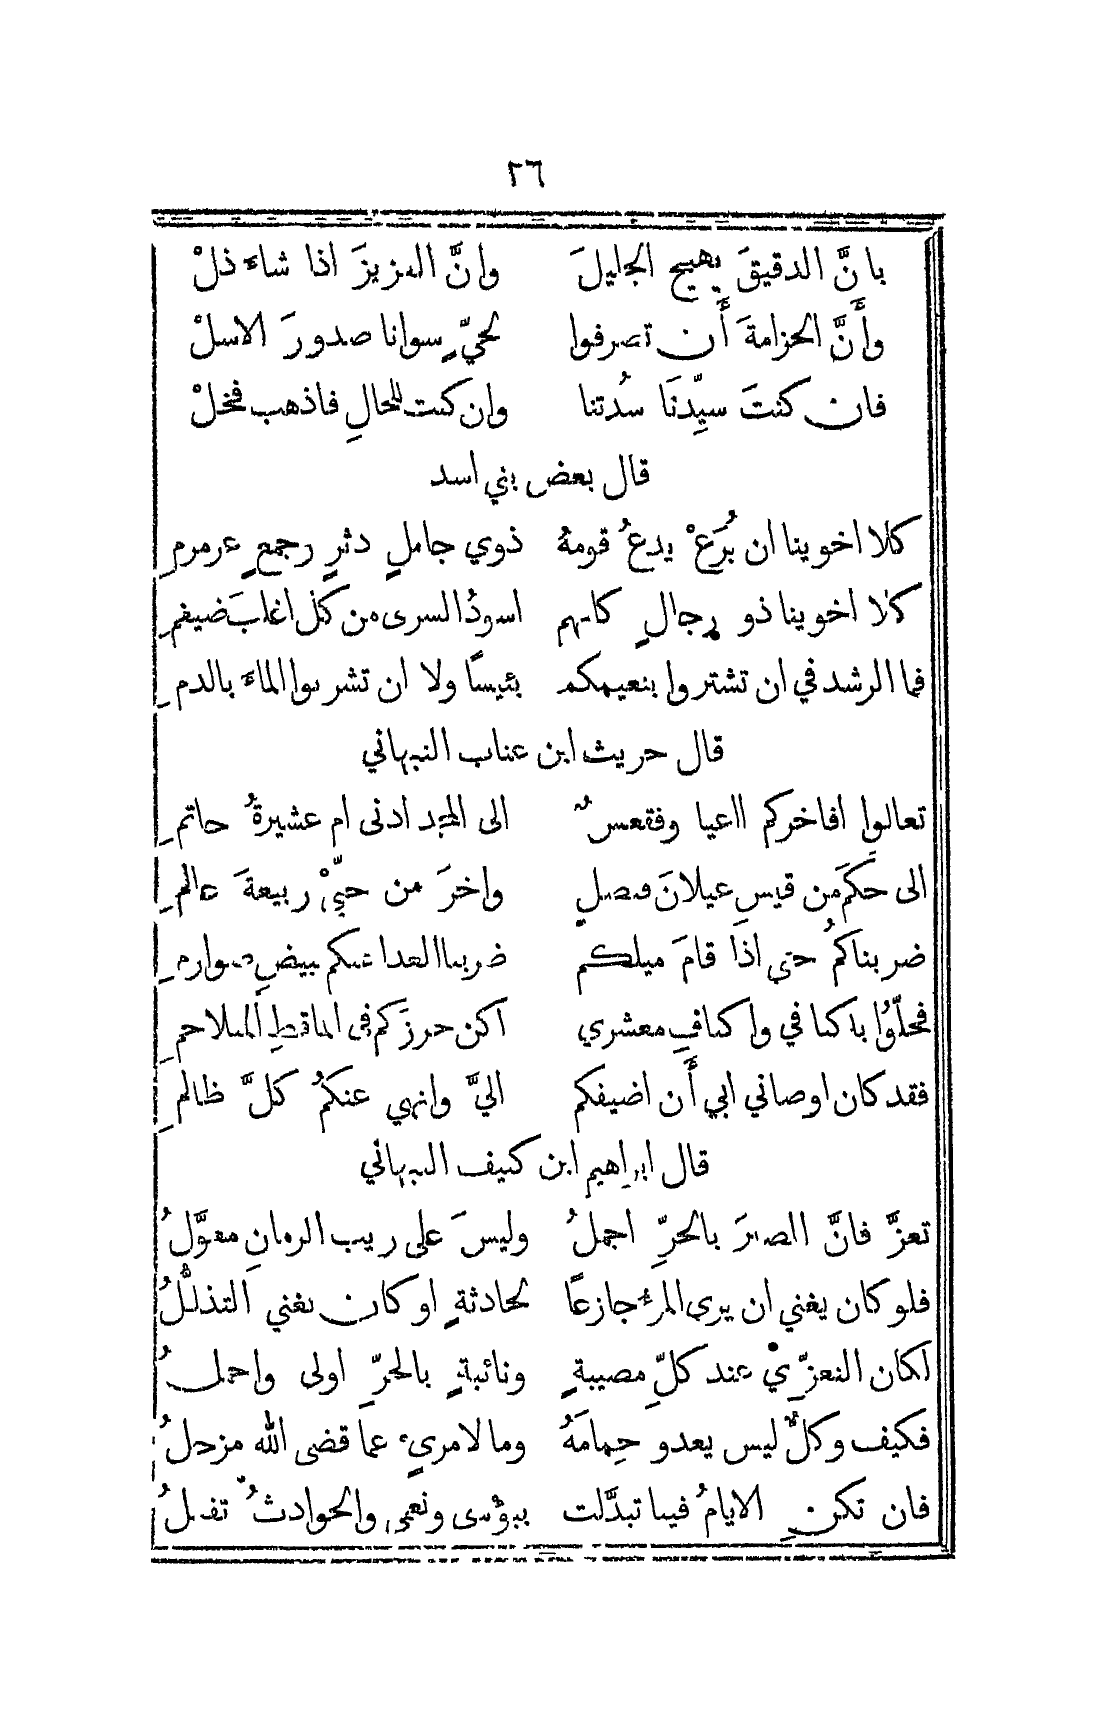 ٢٦
بانَّ الدقيقَ يهيج الجليلَ وانَّ العزيزَ اذا شاءَ ذلْ
وأَنَّ الحزامةَ أَن تصرفوا لحيٍّ سوانا صدورَ الاسلْ
فان كنتَ سيِّدنَا سُدتنا وان كنت للخالِ فاذهب فخلْ
قال بعض بني اسد
كلا اخوينا ان يُرَعْ يدعُ قومهُ ذوي جاملٍ دثرٍ وجمعٍ عرمرمِ
كلا اخوينا ذو رجالٍ كانهم اسودُ السرى من كل اغلبَ ضيغمِ
فما الرشد في ان تشتروا بنعيمكم بئيسًا ولا ان تشربوا الماءَ بالدمِ
قال حريث ابن عناب النبهاني
تعالوا افاخركم ااعيا وفقعسٌ الى المجد ادنى ام عشيرةُ حاتمِ
الى حكَمٍ من قيسِ عيلانَ فيصلٍ واخرَ من حيّيْ ربيعةَ عالمِ
ضربناكمُ حتى اذا قامَ ميلكم ضربنا العدا عنكم ببيضِ صوارمِ
فحلّوُا باكنافي واكنافِ معشري اكن حرزَكم في الماقطِ المتلاحمِ
فقد كان اوصاني ابي أَن اضيفكم اليَّ وانهي عنكمُ كلَّ ظالمِ
قال ابراهيم ابن كنيف النبهاني
تعزَّ فانَّ الصبرَ بالحرِّ اجملُ وليسَ على ريب الزمانِ معوَّلُ
فلو كان يغني ان يرى المرءُ جازعًا لحادثةٍ او كان يغني التذللُّ
لكان التعزّيْ عند كلِّ مصيبةٍ ونائبةٍ بالحرِّ اولى واجملُ
فكيف وكلٌّ ليس يعدو حِمامَهُ وما لامريءٍ عما قضى الله مزحلُ
فان تكنِ الايامُ فينا تبدَّلت ببؤسى ونعمى والحوادثُ تفعلُ